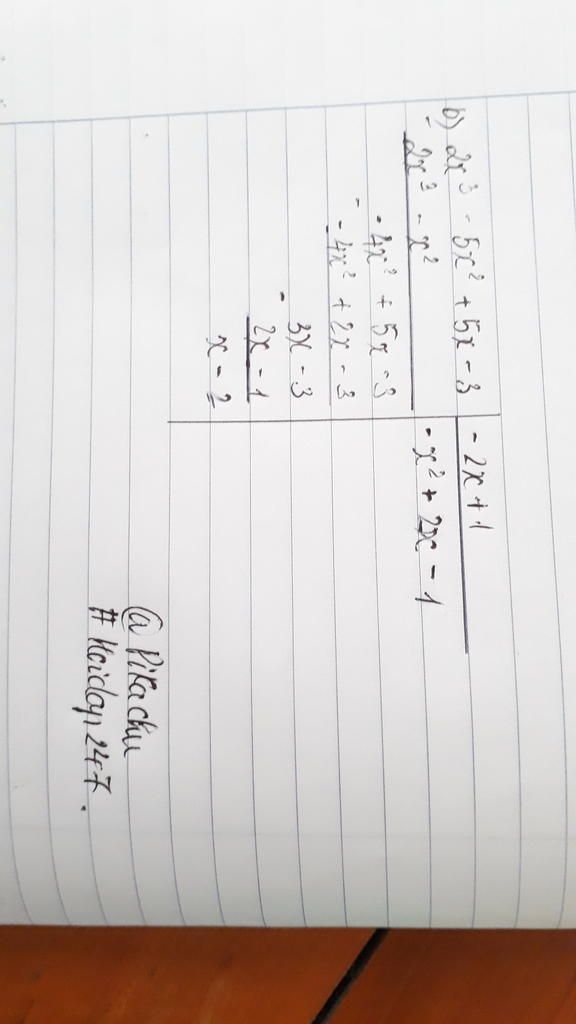 b) 2x³ - 5x² + 5x - 3 | - 2x + 1
- 2x³ - x² | - x² + 2x - 1
- 4x² + 5x - 3
- - 4x² + 2x - 3
3x - 3
- 2x - 1
x - 2
@ Pikachu
# Hoidap247.